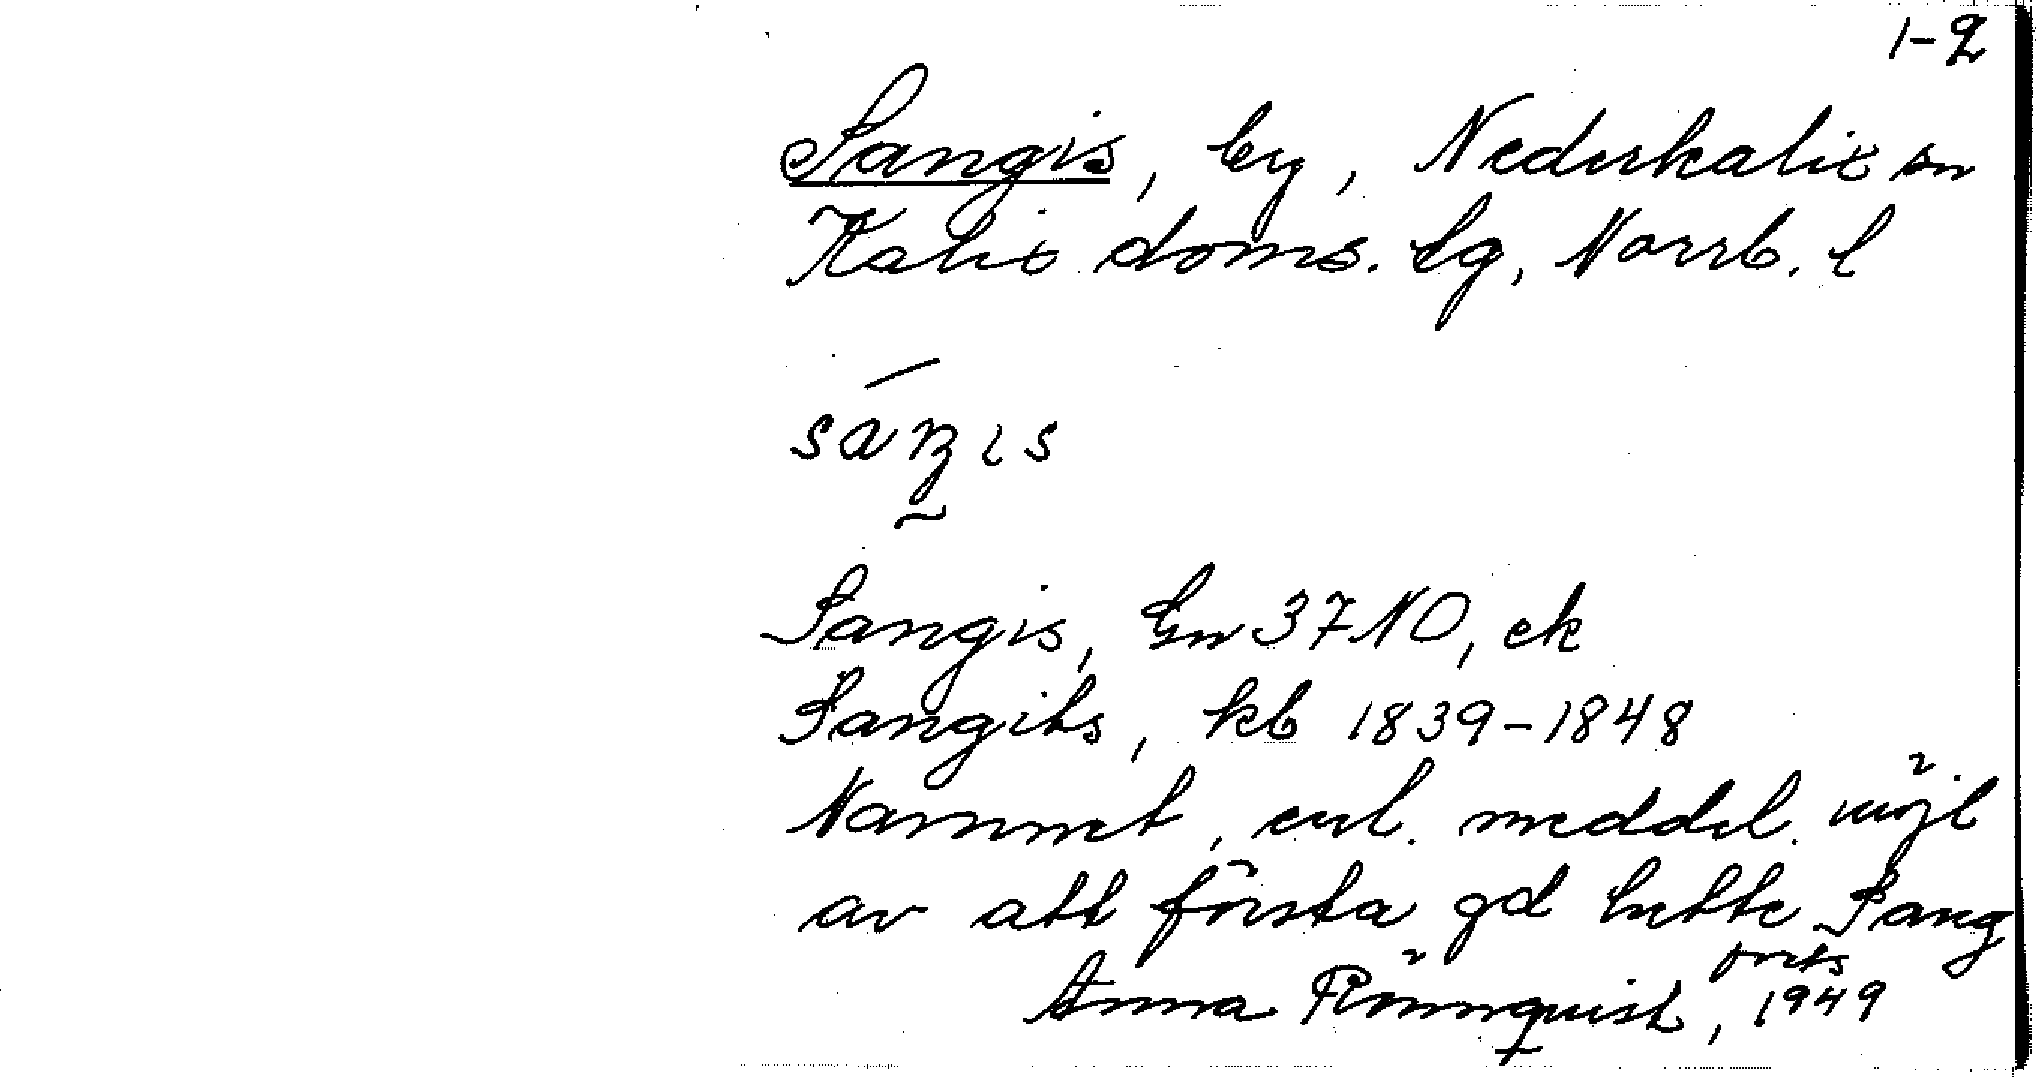 1-2
Sangis, by, Nederkalix sn
Kalix doms. lg, Norrb. l
Sangis, Gn 37 NO, ek
Sangits, kb 1839-1848
Namnet, enl. meddel. möjl
av att första gd hette Sang
forts
Anna Rönnquist, 1949